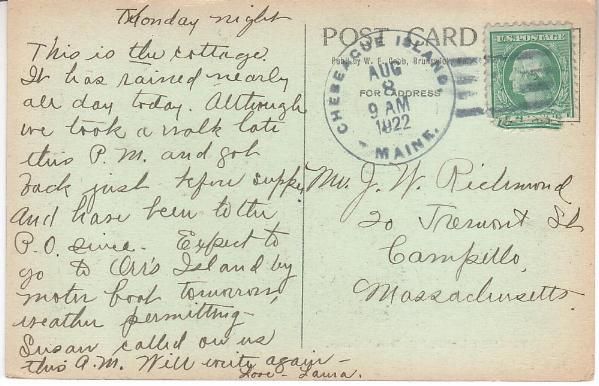 Monday night
This is the cottage.
It has rained nearly
all day today. Although
we took a walk late
this P.M. and got
back just before supper
and have been to the
P.O. since. Expect to
go to Orr's Island by
motor boat tomorrow,
weather permitting.
Susan called on us
this A.M. Will write again—
Love - Laura.
POST CARD
Pub. by W. F.
FOR ADDRESS
CHEBEAGUE ISLAND
AUG
8
9 AM
1922
MAINE.
U.S. POSTAGE
Mr. J. W. Richmond
20 Tremont St
Campello,
Massachusetts.